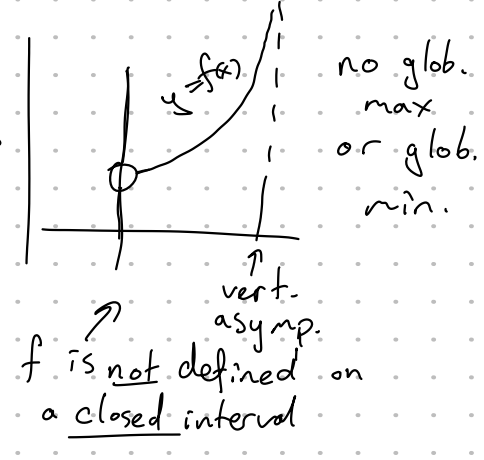 y=f(x)
no glob.
max
or glob.
min.
vert.
asymp.
f is not defined on
a closed interval